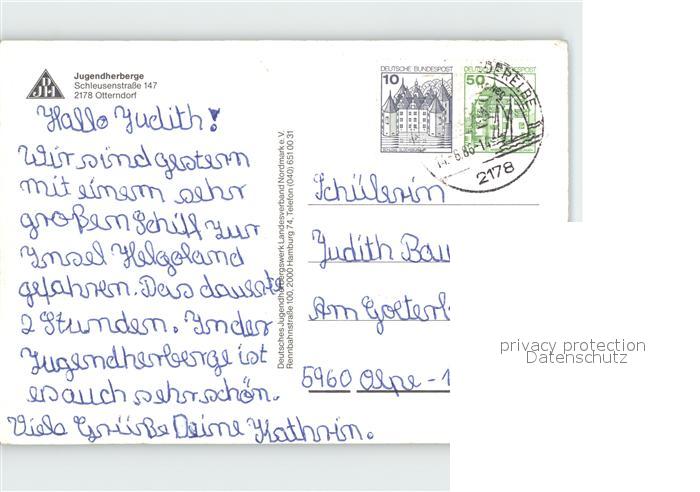 Jugendherberge
Schleusenstraße 147
2178 Otterndorf
Hallo Judith!
Wir sind gestern
mit einem sehr
großen Schiff zur
Insel Helgoland
gefahren. Das dauerte
2 Stunden. In der
Jugendherberge ist
es auch sehr schön.
Viele Grüße Deine Kathrin.
Deutsches Jugendherbergswerk Landesverband Nordmark e.V.
Rennbahnstraße 100, 2000 Hamburg 74, Telefon (040) 651 00 31
DEUTSCHE BUNDESPOST
10
DEUTSCHE BUNDESPOST
50
2178
Schülerin
Judith Bau
Am Golterb
5960 Olpe - 1
privacy protection
Datenschutz